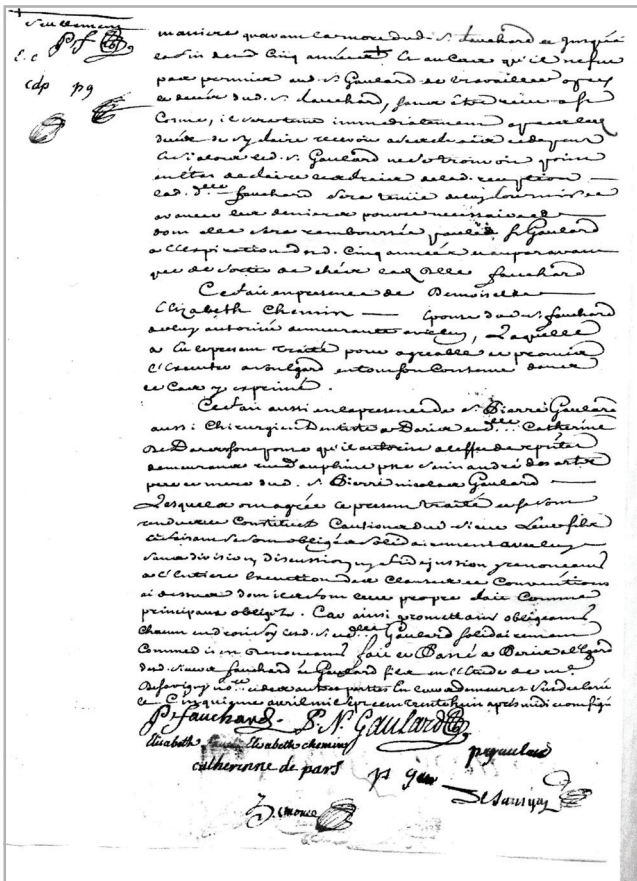 seullement
P f
E. c
cdp pg
maniere qu'avant la mort dud. s. fauchard et jusqu'à
la fin desd. Cinq années Et au Cas qu'il
par permier aud. s. Gaulard de travailler apres
le deces dud. s. fauchard, sans être reçu a St
Cosme, il sera tenu immediatement apres led.
deces de s'y faire recevoir
Et si alors led. s. Gaulard ne se trouvoit point
en état de faire les frais de lad. reception
lad. d.elle fauchard sera tenue de luy fournir et
avancer les deniers pour ce necessaires
dont elle sera remboursée par led. s. Gaulard
a l'Expiration desd. Cinq années et auparavant
que de sortir de chés lad. Dlle fauchard
Ce fait en presence de Demoiselle
Elizabeth Chemin Epouse dud. s. fauchard
de luy autorisée demeurante avec luy, Laquelle
a Eu le present traité pour agreable et promis
l'Executer a son Egard en tout son Contenu dans
le Cas y exprimé.
Ce fait aussi en la presence de s. Pierre Gaulard
aussi Chirurgien Dentiste a Paris et d.elle Catherine
De Pars son epouse qu'il autorise a l'effet des presentes
demeurans rue Dauphine psse saint andré des arts
pere et mere dud. s. Pierre nicolas Gaulard
Lesquels ont agréé le present traité et se sont
rendus et Constitués Cautions dud. sieur Leur fils
Ce faisant se sont obligés solidairement avec luy
sans division, discussion ny fidejussion renonceans
a l'Entiere Execution des Clauses et Conventions
ci dessus dont ils font leur propre fait Comme
principaux obligés. Car ainsi promettans obligeans
Chacun endroit soy lesd. s. et d.elle Gaulard solidairement
Comme dit est renonceans fait et Passé a Paris a l'Egard
desd. sieurs fauchard et Gaulard fils en l'Etude de me
Desavigny no.re et des autres parties En leurs demeures
le Cinquieme avril mil sept cent trente huit après midi et ont signé
P. fauchard. P. N. Gaulard
elisabeth Elisabeth chemin p gaulard
catherinne de pars
Desavigny